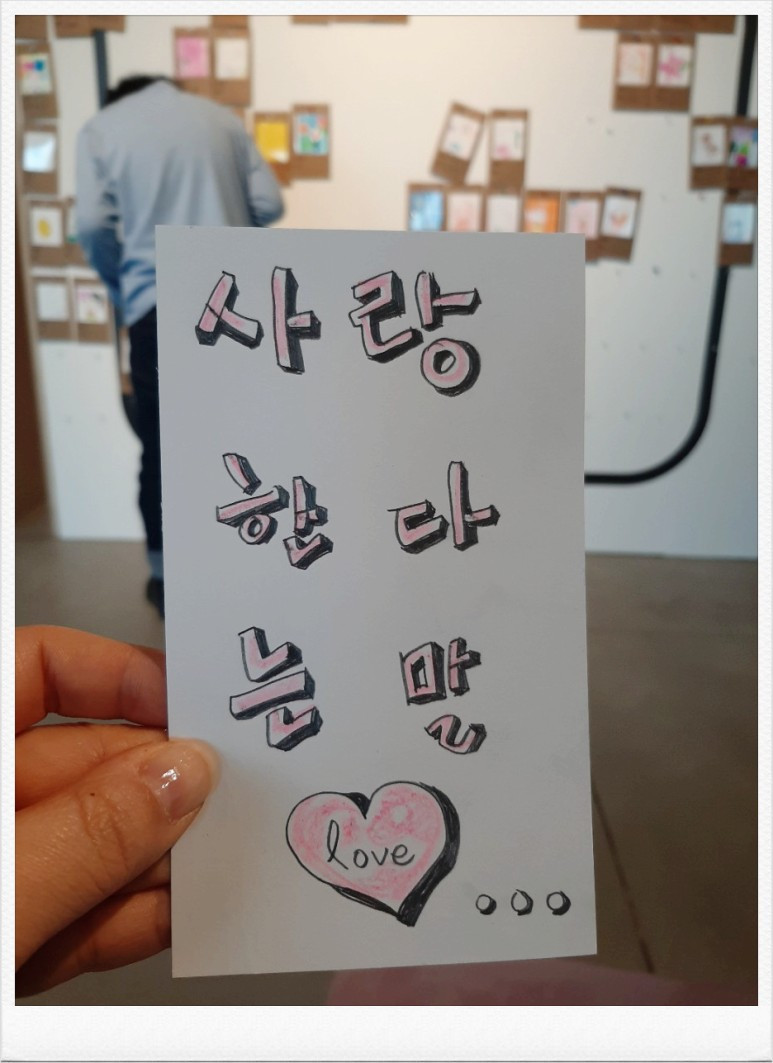 사랑
한다
는말
love
...